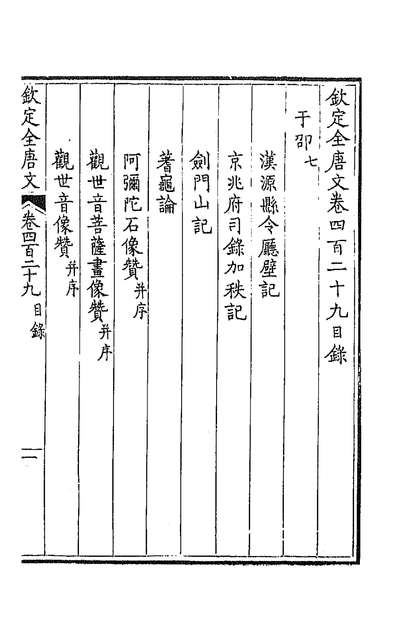 欽定全唐文卷四百二十九目錄
于邵七
漢源縣令廳壁記
京兆府司錄加秩記
劍門山記
蓍龜論
阿彌陀石像贊并序
觀世音菩薩畫像贊并序
觀世音像贊并序
欽定全唐文 卷四百二十九目錄 一